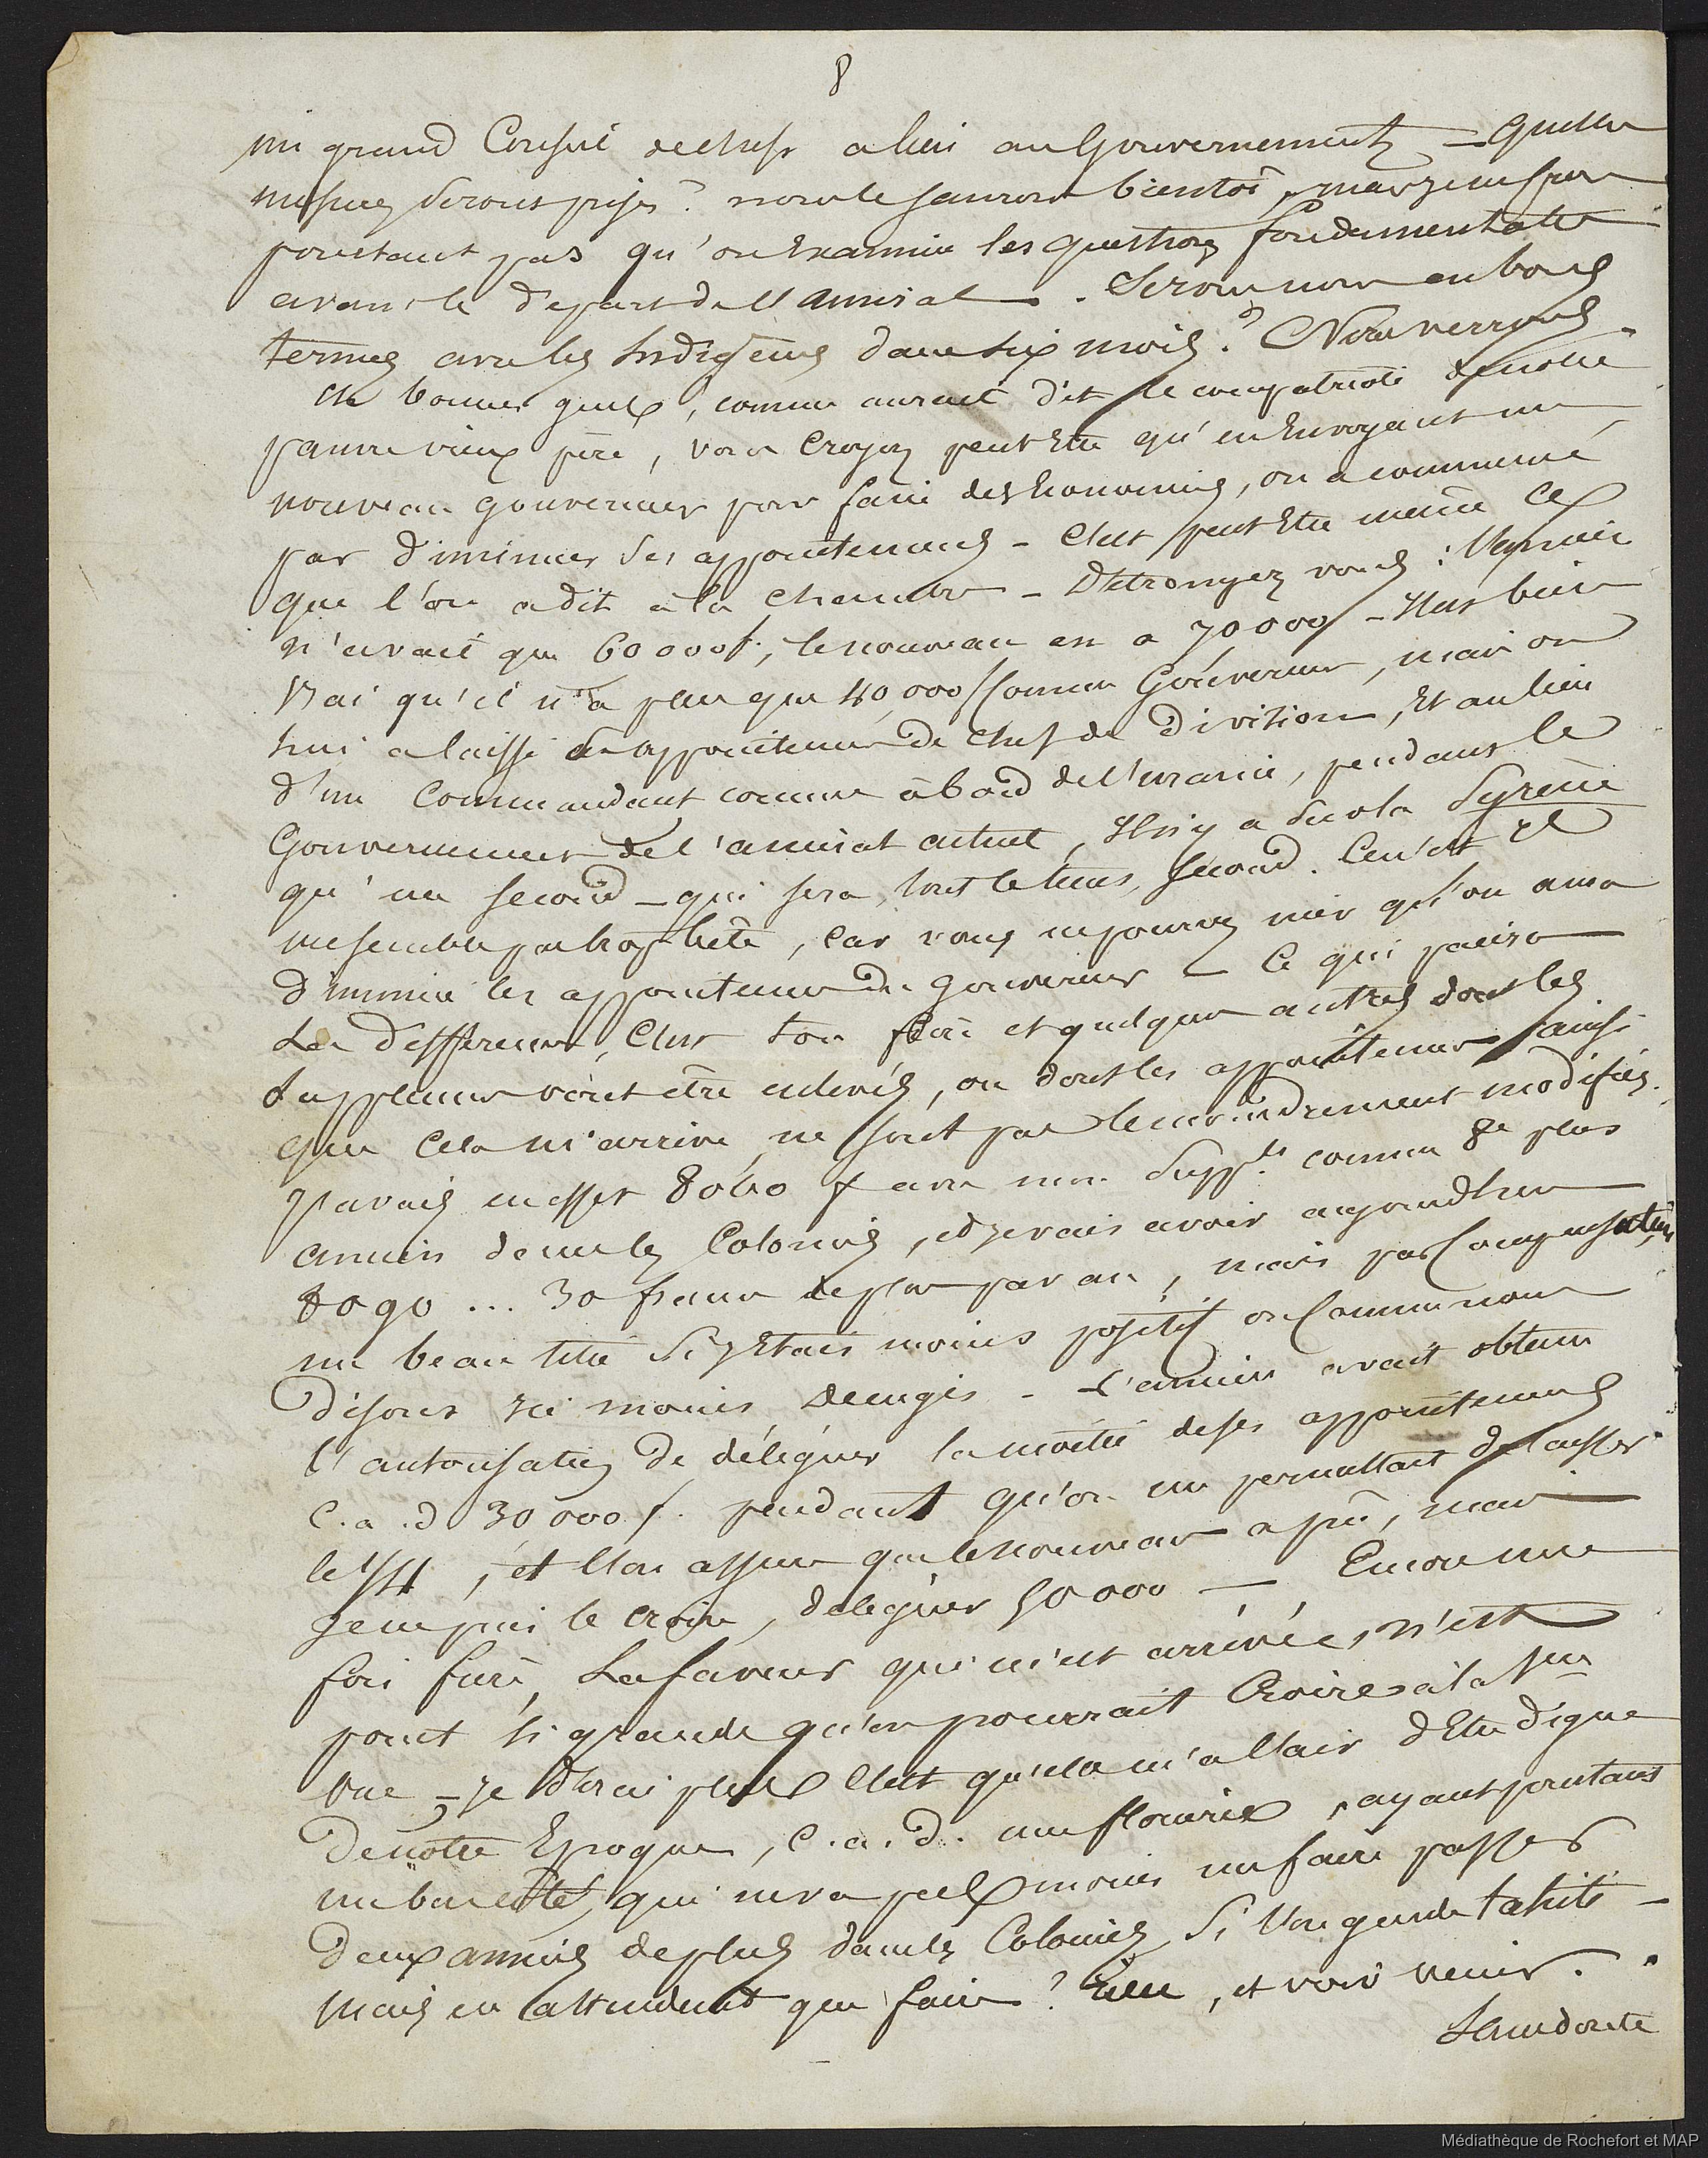 8
un grand Conseil de chefs a lieu au Gouvernement — Quelles
mesures seront prises? nous le saurons bientôt, mais je ne pense
pourtant pas qu'on Examine les questions fondamentales
avant le départ de l'amiral. Serons nous en bons
termes avec les Indigènes dans six mois? Nous verrons.
Eh bonnes gens, comme aurait dit le compatriote de notre
pauvre vieux père, vous croyez peut Etre qu'en Envoyant un
nouveau gouverneur pour faire des Economies, on a commencé
par diminuer ses appointements — C'est peut Etre même ce
que l'on a dit à la chambre — Détrompez vous:
n'avait que 60 000 f, le nouveau en a 70 000 — Il est bien
Vrai qu'il n'a plus que 40,000 f comme Gouverneur, mais on
lui a laissé ses appointements de chef de division, Et au lieu
d'un Commandant comme à bord de l'uranie, pendant le
Gouvernement de l'amiral actuel, Il n'y a sur la Syrène
qu'un second — qui sera, tout le tems, second. Ceci Est
me semble pas trop bête, car vous ne pouvez nier qu'on aura
diminué les appointements du gouverneur — Ce qui paiera
La différence, c'est ton frère et quelques autres dont les
suppléments vont être enlevés, ou dont les appointements, ainsi
que cela m'arrive, ne sont pas le moindrement modifiés.
J'avais en effet 8060 f avec mon Suppt. comme 8e plus
ancien dans les Colonies, et je vais avoir aujourd'hui
8090 ... 30 francs de plus par an, mais par Compensation
un beau titre si j'Etais moins positif ou Comme nous
disons ici moins — L'ancien avait obtenu
l'autorisation de déléguer la moitié de ses appointements
c.a.d 30 000 f. pendant qu'on me permettait de laisser
le 1/4, et l'on assure que le nouveau a pu, mais
je ne puis le croire, déléguer 50 000 — Encore une
fois furé, La faveur qui m'est arrivée, n'est
point si grande qu'on pourrait Croire à la 1ere
vue — je dirai plus C'est qu'elle m'a l'air d'Etre digne
de notre Epoque, c.a.d. une flouerie, ayant pourtant
un bon côté, qui ne va pas moins me faire passer
deux années de plus dans les Colonies, Si l'on garde tahiti —
Mais en attendant que faire? Rien, et voir venir.
Sans doute
Médiathèque de Rochefort et MAP